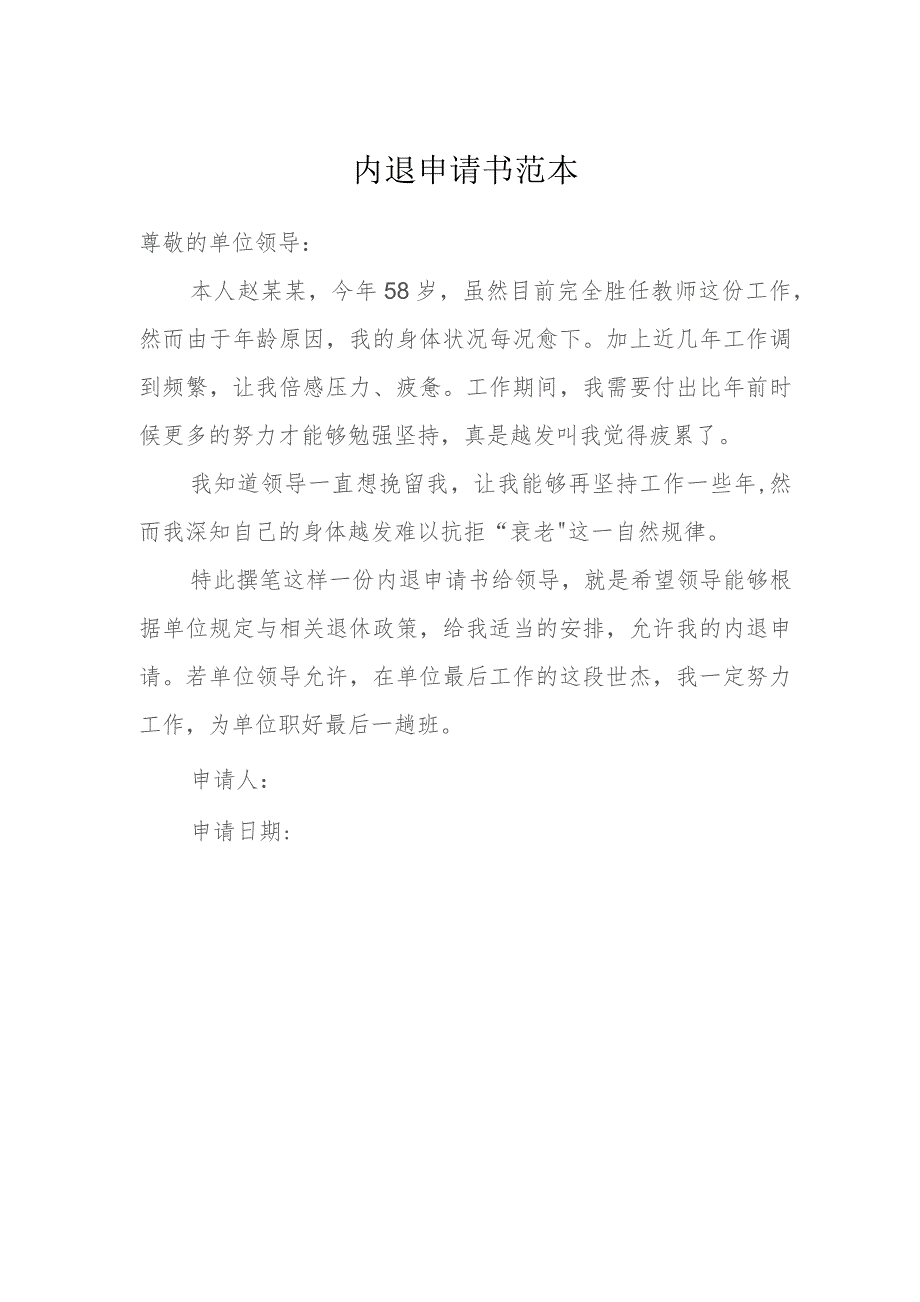 内退申请书范本
尊敬的单位领导：
本人赵某某，今年58岁，虽然目前完全胜任教师这份工作，
然而由于年龄原因，我的身体状况每况愈下。加上近几年工作调
到频繁，让我倍感压力、疲惫。工作期间，我需要付出比年前时
候更多的努力才能够勉强坚持，真是越发叫我觉得疲累了。
我知道领导一直想挽留我，让我能够再坚持工作一些年,然
而我深知自己的身体越发难以抗拒“衰老"这一自然规律。
特此撰笔这样一份内退申请书给领导，就是希望领导能够根
据单位规定与相关退休政策，给我适当的安排，允许我的内退申
请。若单位领导允许，在单位最后工作的这段世杰，我一定努力
工作，为单位职好最后一趟班。
申请人：
申请日期: